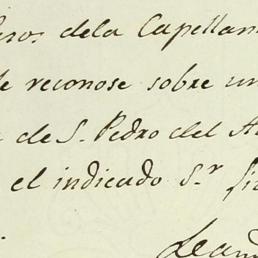 dela Capellan
reconose sobre un
de S. Pedro del A
el indicado S.r
Lean